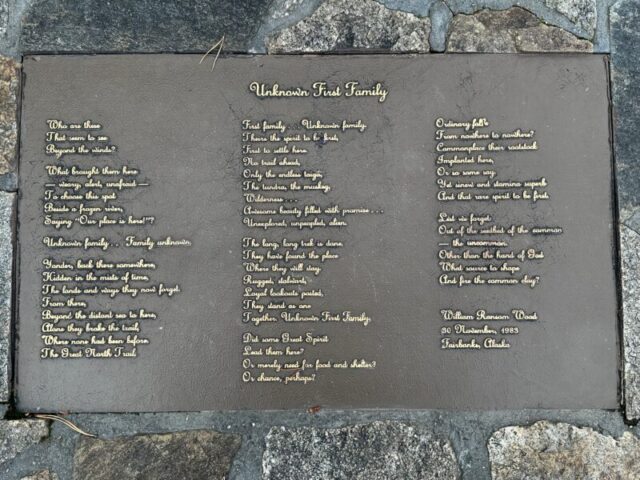 Unknown First Family
Who are these
That seem to see
Beyond the winds?
What brought them here
— weary, alert, unafraid —
To choose this spot
Beside a frozen river,
Saying "Our place is here!"?
Unknown family . . . Family unknown,
Yonder, back there somewhere,
Hidden in the mists of time,
The lands and ways they now forget.
From there,
Beyond the distant sea to here,
Alone they broke the trail,
Where none had been before.
The Great North Trail.
First family . . . Unknown family.
Theirs the spirit to be first,
First to settle here.
No trail ahead,
Only the endless taiga,
The tundra, the muskeg,
Wilderness . . .
Awesome beauty filled with promise . . .
Unexplored, unpeopled, alien.
The long, long trek is done.
They have found the place
Where they will stay.
Rugged, stalwart,
Loyal lookouts posted,
They stand as one
Together. Unknown First Family,
Did some Great Spirit
Lead them here?
Or merely need for food and shelter?
Or chance, perhaps?
Ordinary folk
From nowhere to nowhere?
Commonplace their rootstock
Implanted here,
Or so some say.
Yet sinew and stamina superb
And that rare spirit to be first.
Lest we forget:
Out of the seedbed of the common
— the uncommon.
Other than the hand of God
What source to shape
And fire the common clay?
William Ransom Wood
30 November, 1983
Fairbanks, Alaska